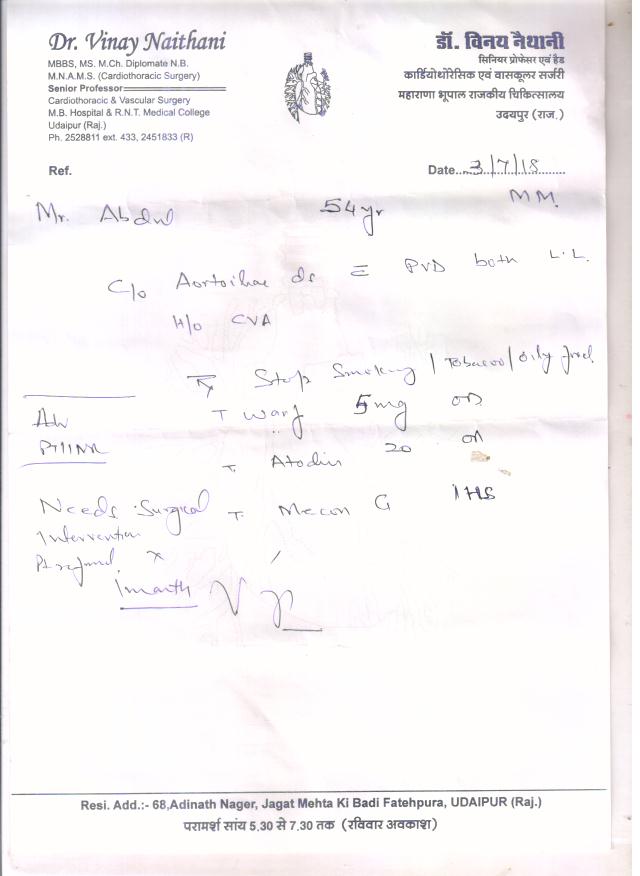 Dr. Vinay Naithani
MBBS, MS. M.Ch. Diplomate N.B.
M.N.A.M.S. (Cardiothoracic Surgery)
Senior Professor
Cardiothoracic & Vascular Surgery
M.B. Hospital & R.N.T. Medical College
Udaipur (Raj.)
Ph. 2528811 ext. 433, 2451833 (R)
डॉ. विनय नैथानी
सिनियर प्रोफेसर एवं हैड
कार्डियोथोरेसिक एवं वासकूलर सर्जरी
महाराणा भूपाल राजकीय चिकित्सालय
उदयपुर (राज.)
Ref.
Date....3/7/18
MM.
Mr. Abdul 54 yr
C/o ds PVD both L.L.
H/o CVA
Stop Smoking / Tobacco / oily food
T Warf 5mg OD
PT/INR
T. 20
Needs Surgical
Intervention
T. G 1 HS
1 month
Resi. Add.:- 68,Adinath Nager, Jagat Mehta Ki Badi Fatehpura, UDAIPUR (Raj.)
परामर्श सांय 5.30 से 7.30 तक (रविवार अवकाश)